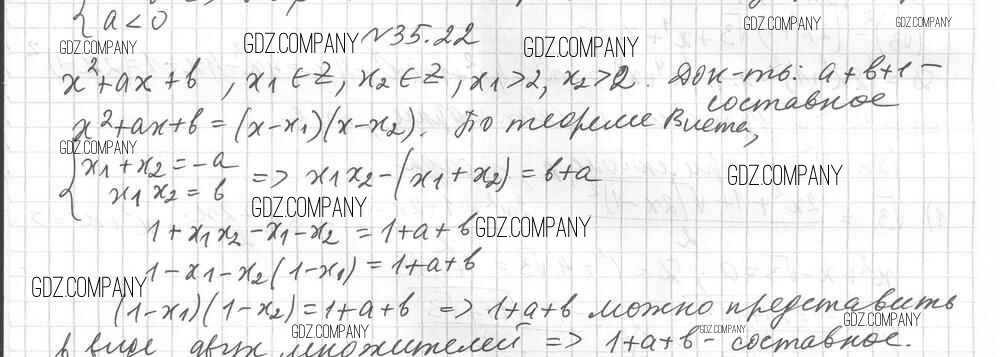 { a < 0
GDZ.COMPANY GDZ.COMPANY
GDZ.COMPANY GDZ.COMPANY №35.22 GDZ.COMPANY
x²+ax+b , x₁ ∈ Z, x₂ ∈ Z, x₁>2, x₂>2. Док-ть: a+b+1 –
составное
x²+ax+b = (x-x₁)(x-x₂). По теореме Виета,
GDZ.COMPANY
{ x₁ + x₂ = -a
x₁ x₂ = b => x₁x₂ - (x₁+x₂) = b+a
GDZ.COMPANY
GDZ.COMPANY
1 + x₁x₂ - x₁ - x₂ = 1+a+b GDZ.COMPANY
1 - x₁ - x₂(1-x₁) = 1+a+b
GDZ.COMPANY
(1-x₁)(1-x₂) = 1+a+b => 1+a+b можно представить
GDZ.COMPANY GDZ.COMPANY GDZ.COMPANY
в виде двух множителей => 1+a+b - составное.